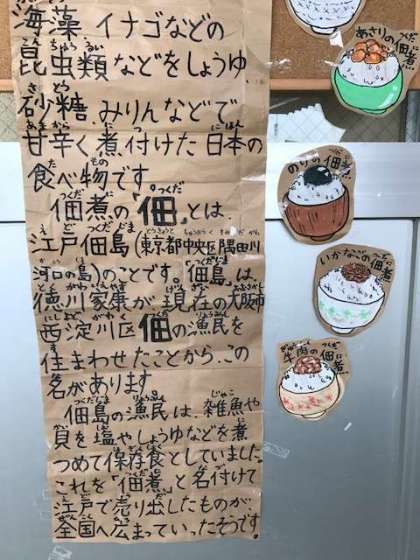 海藻 イナゴなどの
昆虫類などをしょうゆ、
砂糖、みりんなどで
甘辛く煮付けた日本の
食べ物です。
佃煮の『佃』とは、
江戸佃島(東京都中央区隅田川
河口の島)のことです。佃島は、
徳川家康が現在の大阪市
西淀川区佃の漁民を
住まわせたことから、この
名があります
佃島の漁民は、雑魚や
貝を塩やしょうゆなどを煮
つめて保存食としていました。
これを「佃煮」と名付けて
江戸で売り出したものが
全国へ広まっていったそうです。
あさりの佃煮
のりの佃煮
いかなごの佃煮
牛肉の佃煮